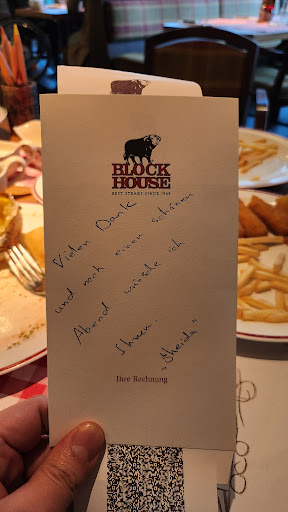 BLOCK
HOUSE
BEST STEAKS SINCE 1968
Vielen Dank
und noch einen schönen
Abend wünsche ich
Ihnen.
"Sheida"
Ihre Rechnung